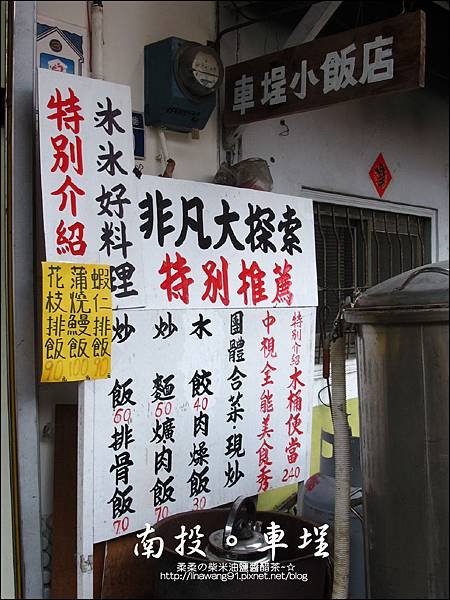 車埕小飯店
特別介紹
冰冰好料理
非凡大探索
特別推薦
蝦仁排飯 90
蒲燒鰻魚飯 100
花枝排飯 90
特別介紹 木桶便當 240
中視全能美食秀
團體合菜現炒
水餃 40 肉燥飯 30
炒麵 60 爌肉飯 70
炒飯 60 排骨飯 70
南投。車埕
柔柔の柴米油鹽醬醋茶~☆
http://linawang91.pixnet.net/blog